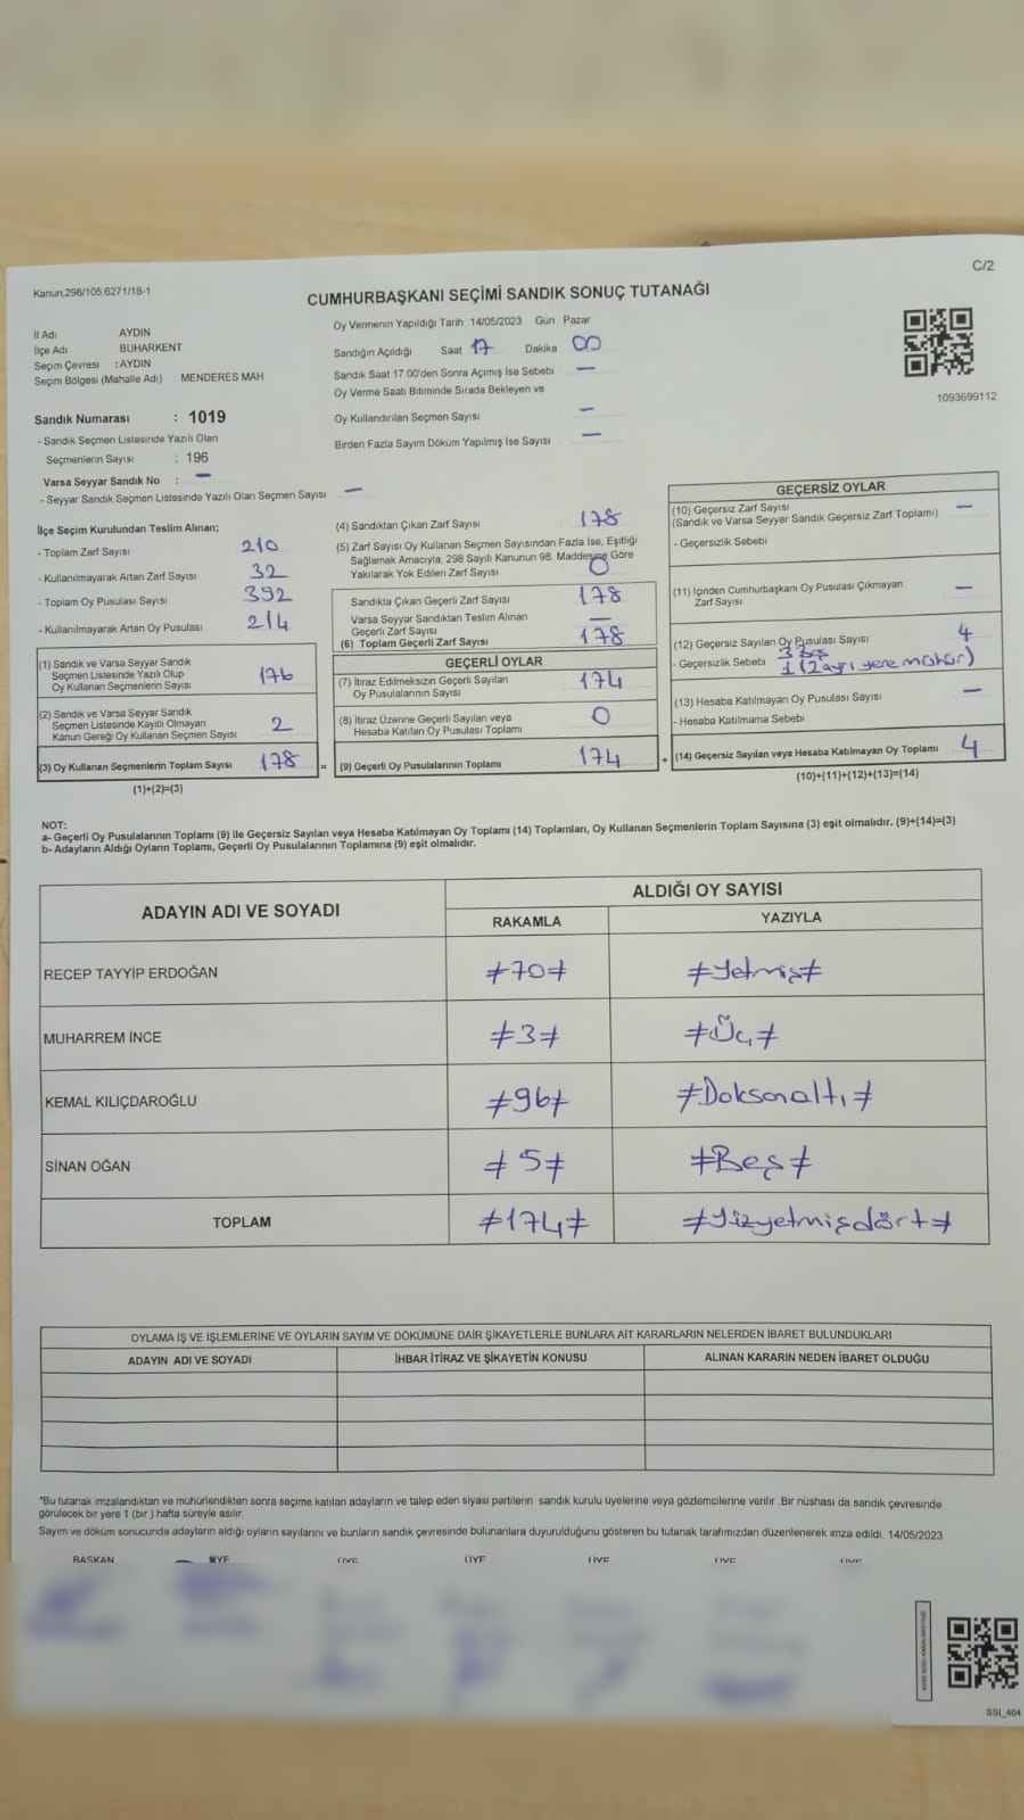 C/2
Kanun.298/105.6271/18-1
CUMHURBAŞKANI SEÇİMİ SANDIK SONUÇ TUTANAĞI
İl Adı AYDIN
İlçe Adı BUHARKENT
Seçim Çevresi : AYDIN
Seçim Bölgesi (Mahalle Adı) : MENDERES MAH
Oy Vermenin Yapıldığı Tarih 14/05/2023 Gün Pazar
Sandığın Açıldığı Saat 17 Dakika 00
Sandık Saat 17.00'den Sonra Açımış İse Sebebi —
Oy Verme Saati Bitiminde Sırada Bekleyen ve
Oy Kullandırılan Seçmen Sayısı —
Birden Fazla Sayım Döküm Yapılmış İse Sayısı —
1093699112
Sandık Numarası : 1019
- Sandık Seçmen Listesinde Yazılı Olan
Seçmenlerin Sayısı : 196
Varsa Seyyar Sandık No : —
- Seyyar Sandık Seçmen Listesinde Yazılı Olan Seçmen Sayısı —
İlçe Seçim Kurulundan Teslim Alınan;
- Toplam Zarf Sayısı 210
- Kullanılmayarak Artan Zarf Sayısı 32
- Toplam Oy Pusulası Sayısı 392
- Kullanılmayarak Artan Oy Pusulası 214
(1) Sandık ve Varsa Seyyar Sandık
Seçmen Listesinde Yazılı Olup
Oy Kullanan Seçmenlerin Sayısı 176
(2) Sandık ve Varsa Seyyar Sandık
Seçmen Listesinde Kayıtlı Olmayan
Kanun Gereği Oy Kullanan Seçmen Sayısı 2
(3) Oy Kullanan Seçmenlerin Toplam Sayısı 178
(1)+(2)=(3)
(4) Sandıktan Çıkan Zarf Sayısı 178
(5) Zarf Sayısı Oy Kullanan Seçmen Sayısından Fazla İse, Eşitliği
Sağlamak Amacıyla, 298 Sayılı Kanunun 98. Maddesine Göre
Yakılarak Yok Edilen Zarf Sayısı 0
Sandıkta Çıkan Geçerli Zarf Sayısı 178
Varsa Seyyar Sandıktan Teslim Alınan
Geçerli Zarf Sayısı —
(6) Toplam Geçerli Zarf Sayısı 178
GEÇERLİ OYLAR
(7) İtiraz Edilmeksizin Geçerli Sayılan
Oy Pusulalarının Sayısı 174
(8) İtiraz Üzerine Geçerli Sayılan veya
Hesaba Katılan Oy Pusulası Toplamı 0
= (9) Geçerli Oy Pusulalarının Toplamı 174
GEÇERSİZ OYLAR
(10) Geçersiz Zarf Sayısı
(Sandık ve Varsa Seyyar Sandık Geçersiz Zarf Toplamı) —
- Geçersizlik Sebebi
(11) İçinden Cumhurbaşkanı Oy Pusulası Çıkmayan
Zarf Sayısı —
(12) Geçersiz Sayılan Oy Pusulası Sayısı 4
3 boş
- Geçersizlik Sebebi 1 (2 ayrı yere mühür)
(13) Hesaba Katılmayan Oy Pusulası Sayısı —
- Hesaba Katılmama Sebebi
+ (14) Geçersiz Sayılan veya Hesaba Katılmayan Oy Toplamı 4
(10)+(11)+(12)+(13)=(14)
NOT:
a- Geçerli Oy Pusulalarının Toplamı (9) ile Geçersiz Sayılan veya Hesaba Katılmayan Oy Toplamı (14) Toplamları, Oy Kullanan Seçmenlerin Toplam Sayısına (3) eşit olmalıdır. (9)+(14)=(3)
b- Adayların Aldığı Oyların Toplamı, Geçerli Oy Pusulalarının Toplamına (9) eşit olmalıdır.
ADAYIN ADI VE SOYADI ALDIĞI OY SAYISI
RAKAMLA YAZIYLA
RECEP TAYYİP ERDOĞAN ≠70≠ ≠Yetmiş≠
MUHARREM İNCE ≠3≠ ≠Üç≠
KEMAL KILIÇDAROĞLU ≠96≠ ≠Doksanaltı≠
SİNAN OĞAN ≠5≠ ≠Beş≠
TOPLAM ≠174≠ ≠Yüzyetmişdört≠
OYLAMA İŞ VE İŞLEMLERİNE VE OYLARIN SAYIM VE DÖKÜMÜNE DAİR ŞİKAYETLERLE BUNLARA AİT KARARLARIN NELERDEN İBARET BULUNDUKLARI
ADAYIN ADI VE SOYADI İHBAR İTİRAZ VE ŞİKAYETİN KONUSU ALINAN KARARIN NEDEN İBARET OLDUĞU
*Bu tutanak imzalandıktan ve mühürlendikten sonra seçime katılan adayların ve talep eden siyasi partilerin sandık kurulu üyelerine veya gözlemcilerine verilir. Bir nüshası da sandık çevresinde
görülecek bir yere 1 (bir ) hafta süreyle asılır.
Sayım ve döküm sonucunda adayların aldığı oyların sayılarını ve bunların sandık çevresinde bulunanlara duyurulduğunu gösteren bu tutanak tarafımızdan düzenlenerek imza edildi. 14/05/2023
BAŞKAN ÜYE ÜYE ÜYE ÜYE ÜYE ÜYE
SSI_404